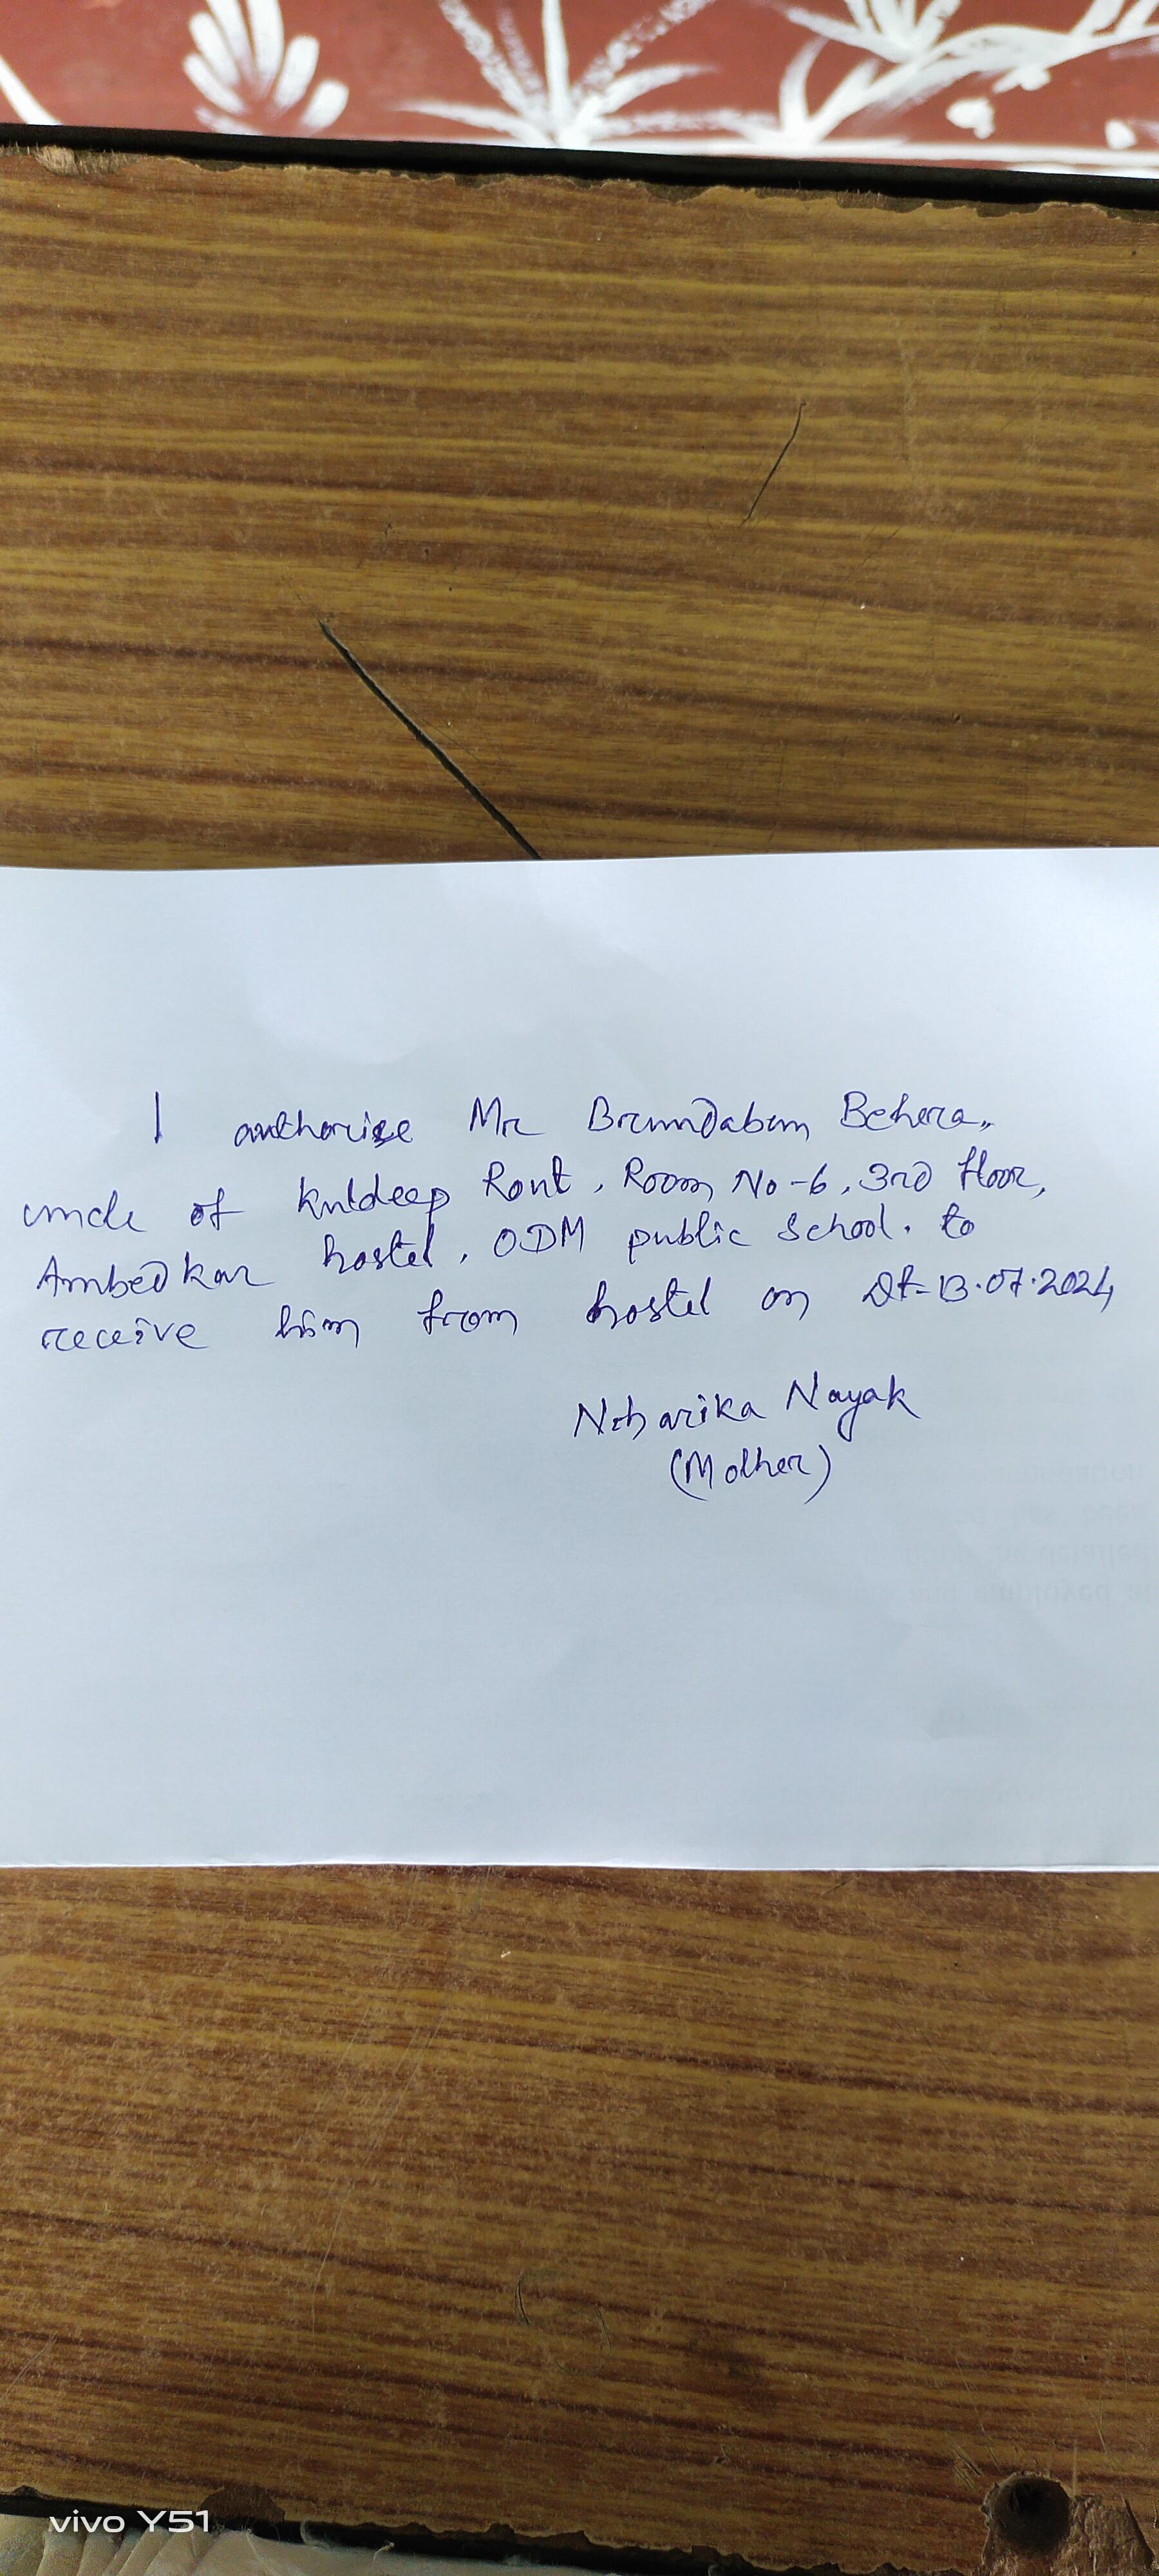 I authorise Mr Brundaban Behera,
uncle of Kuldeep Rout, Room No-6, 3rd floor,
Ambedkar hostel, ODM public School. to
receive him from hostel on Dt-13.07.2024
Niharika Nayak
(Mother)
vivo Y51